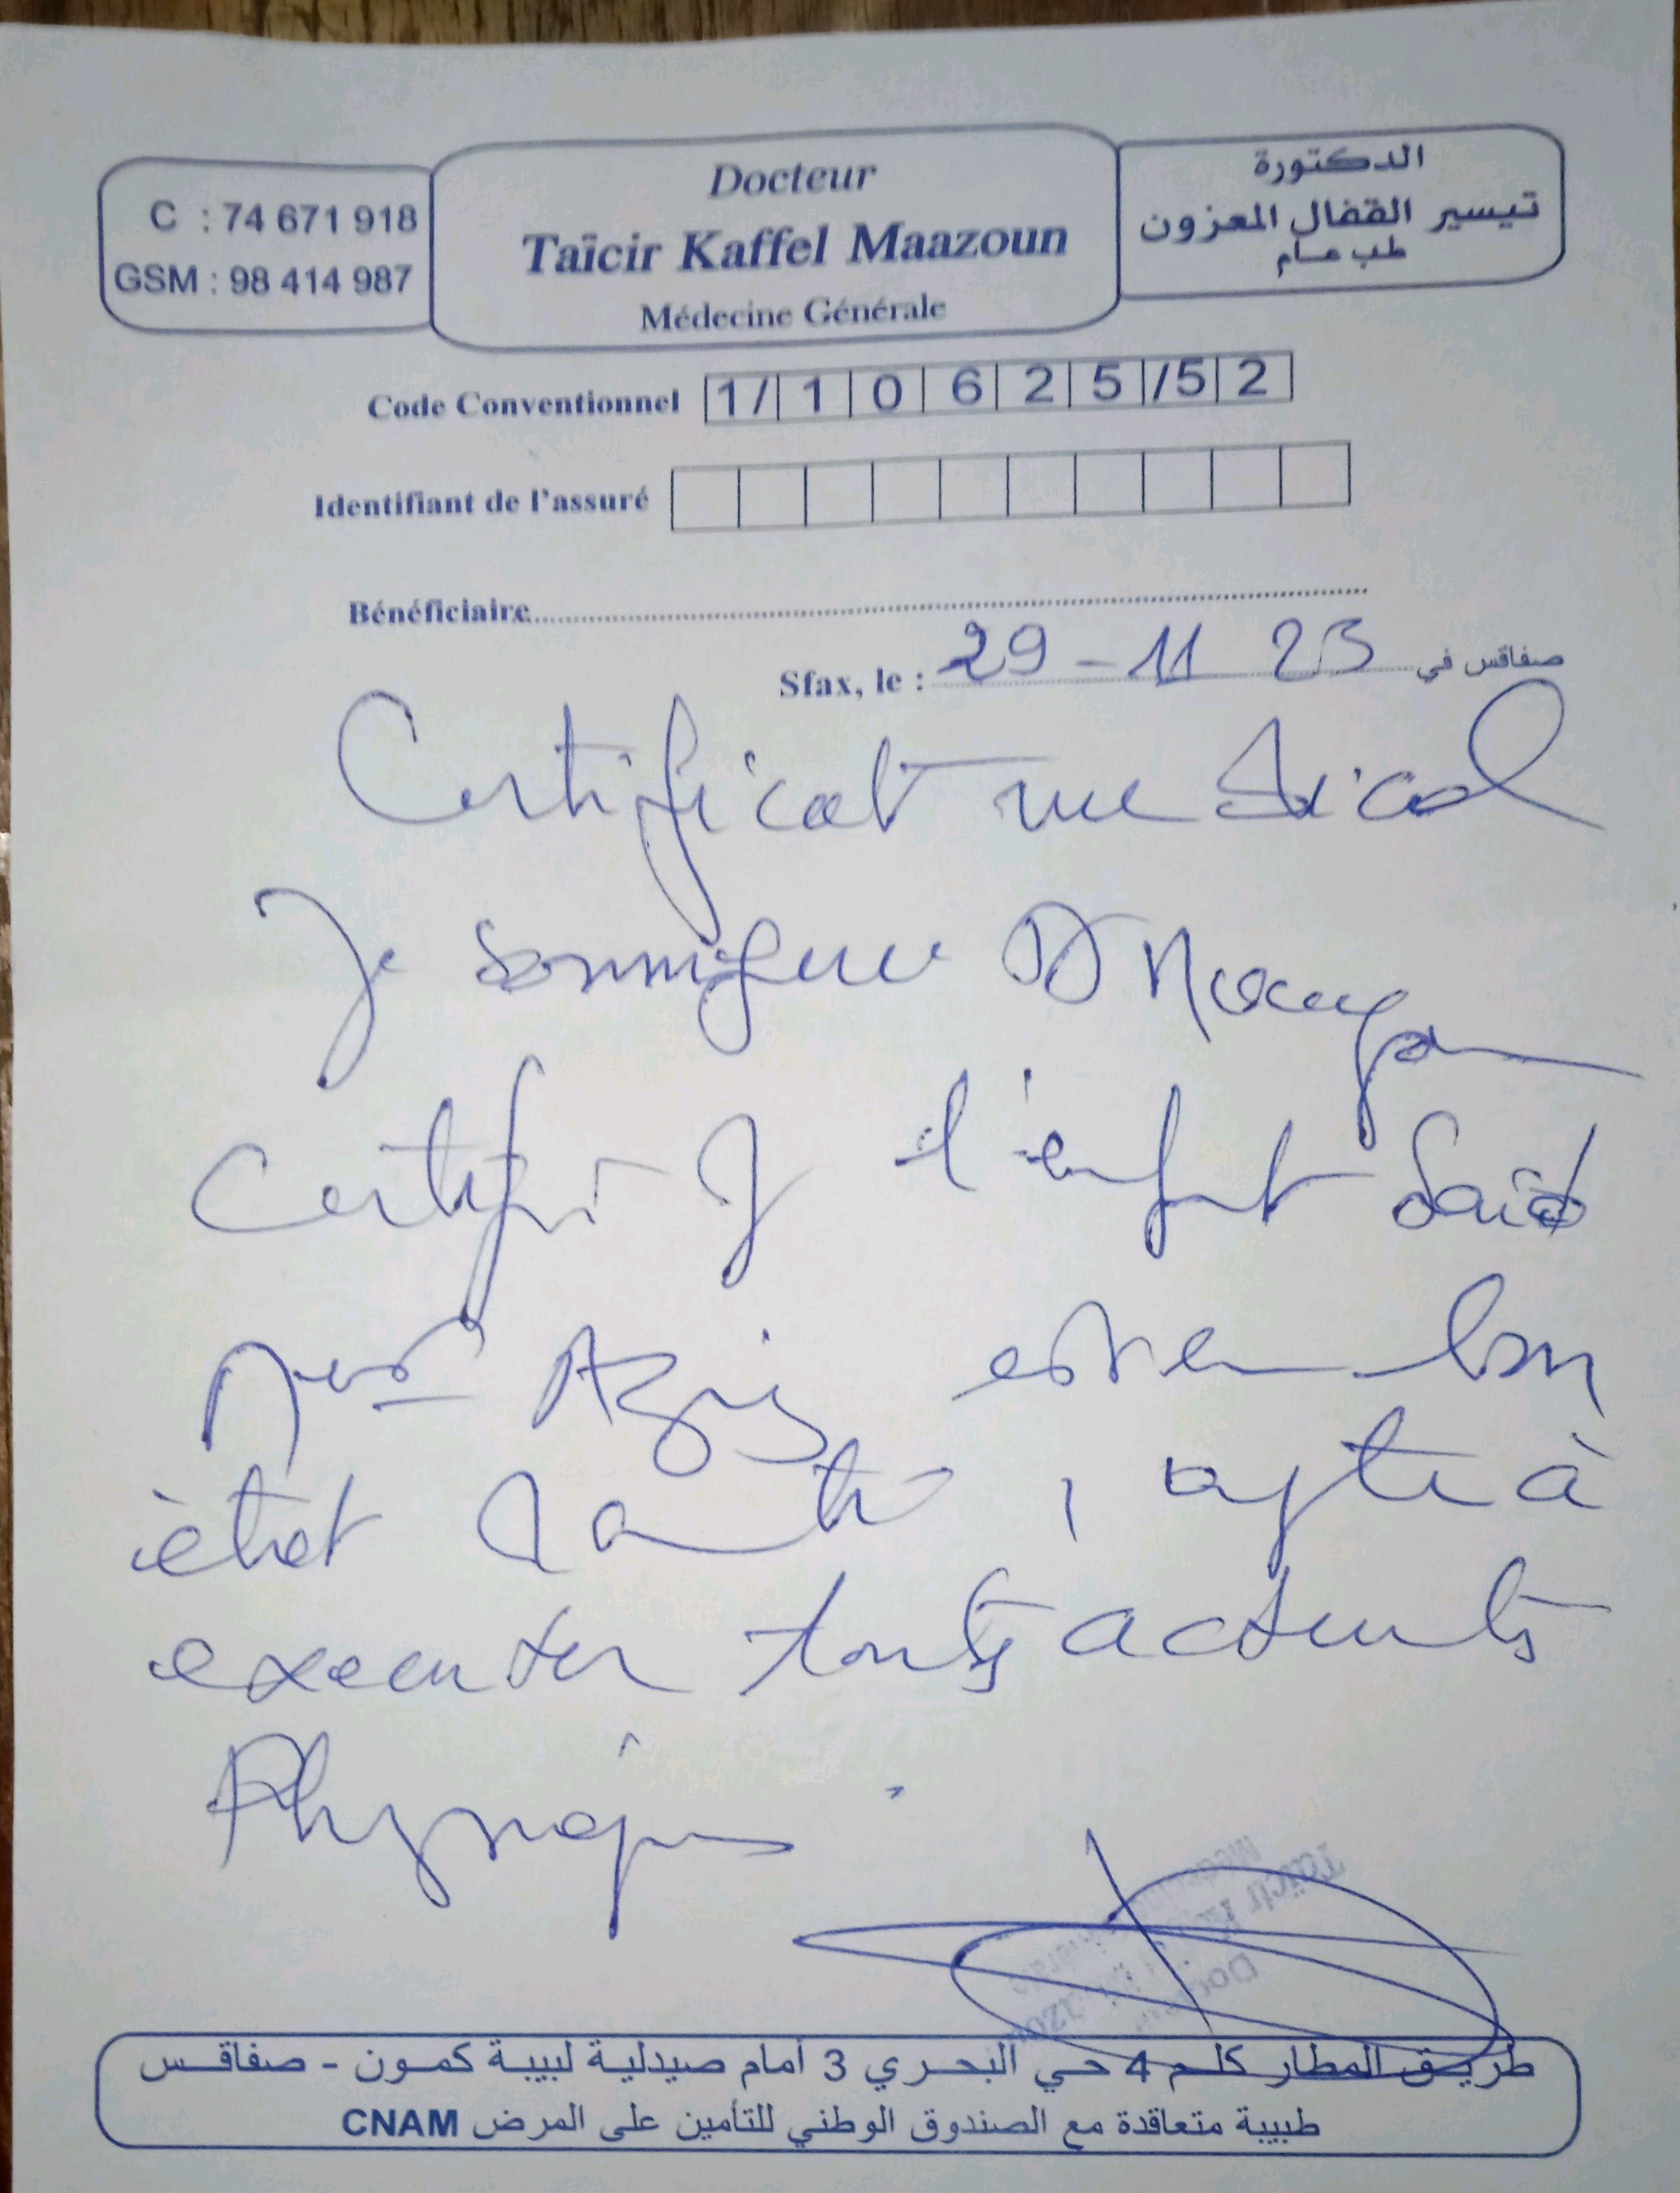 C : 74 671 918
GSM : 98 414 987
Docteur
Taïcir Kaffel Maazoun
Médecine Générale
الدكتورة
تيسير القفال المعزون
طب عام
Code Conventionnel 1/10625/52
Identifiant de l'assuré
Bénéficiaire
Sfax, le : 29 - 11 23 صفاقس في
Certificat medical
Je soussignee Dr
Certifie q l'enfant Said
Aziz est en bon
état santé, apte à
executer touts activités
Physique
طريق المطار كلم 4 حي البحري 3 أمام صيدلية لبيبة كمون - صفاقس
طبيبة متعاقدة مع الصندوق الوطني للتأمين على المرض CNAM